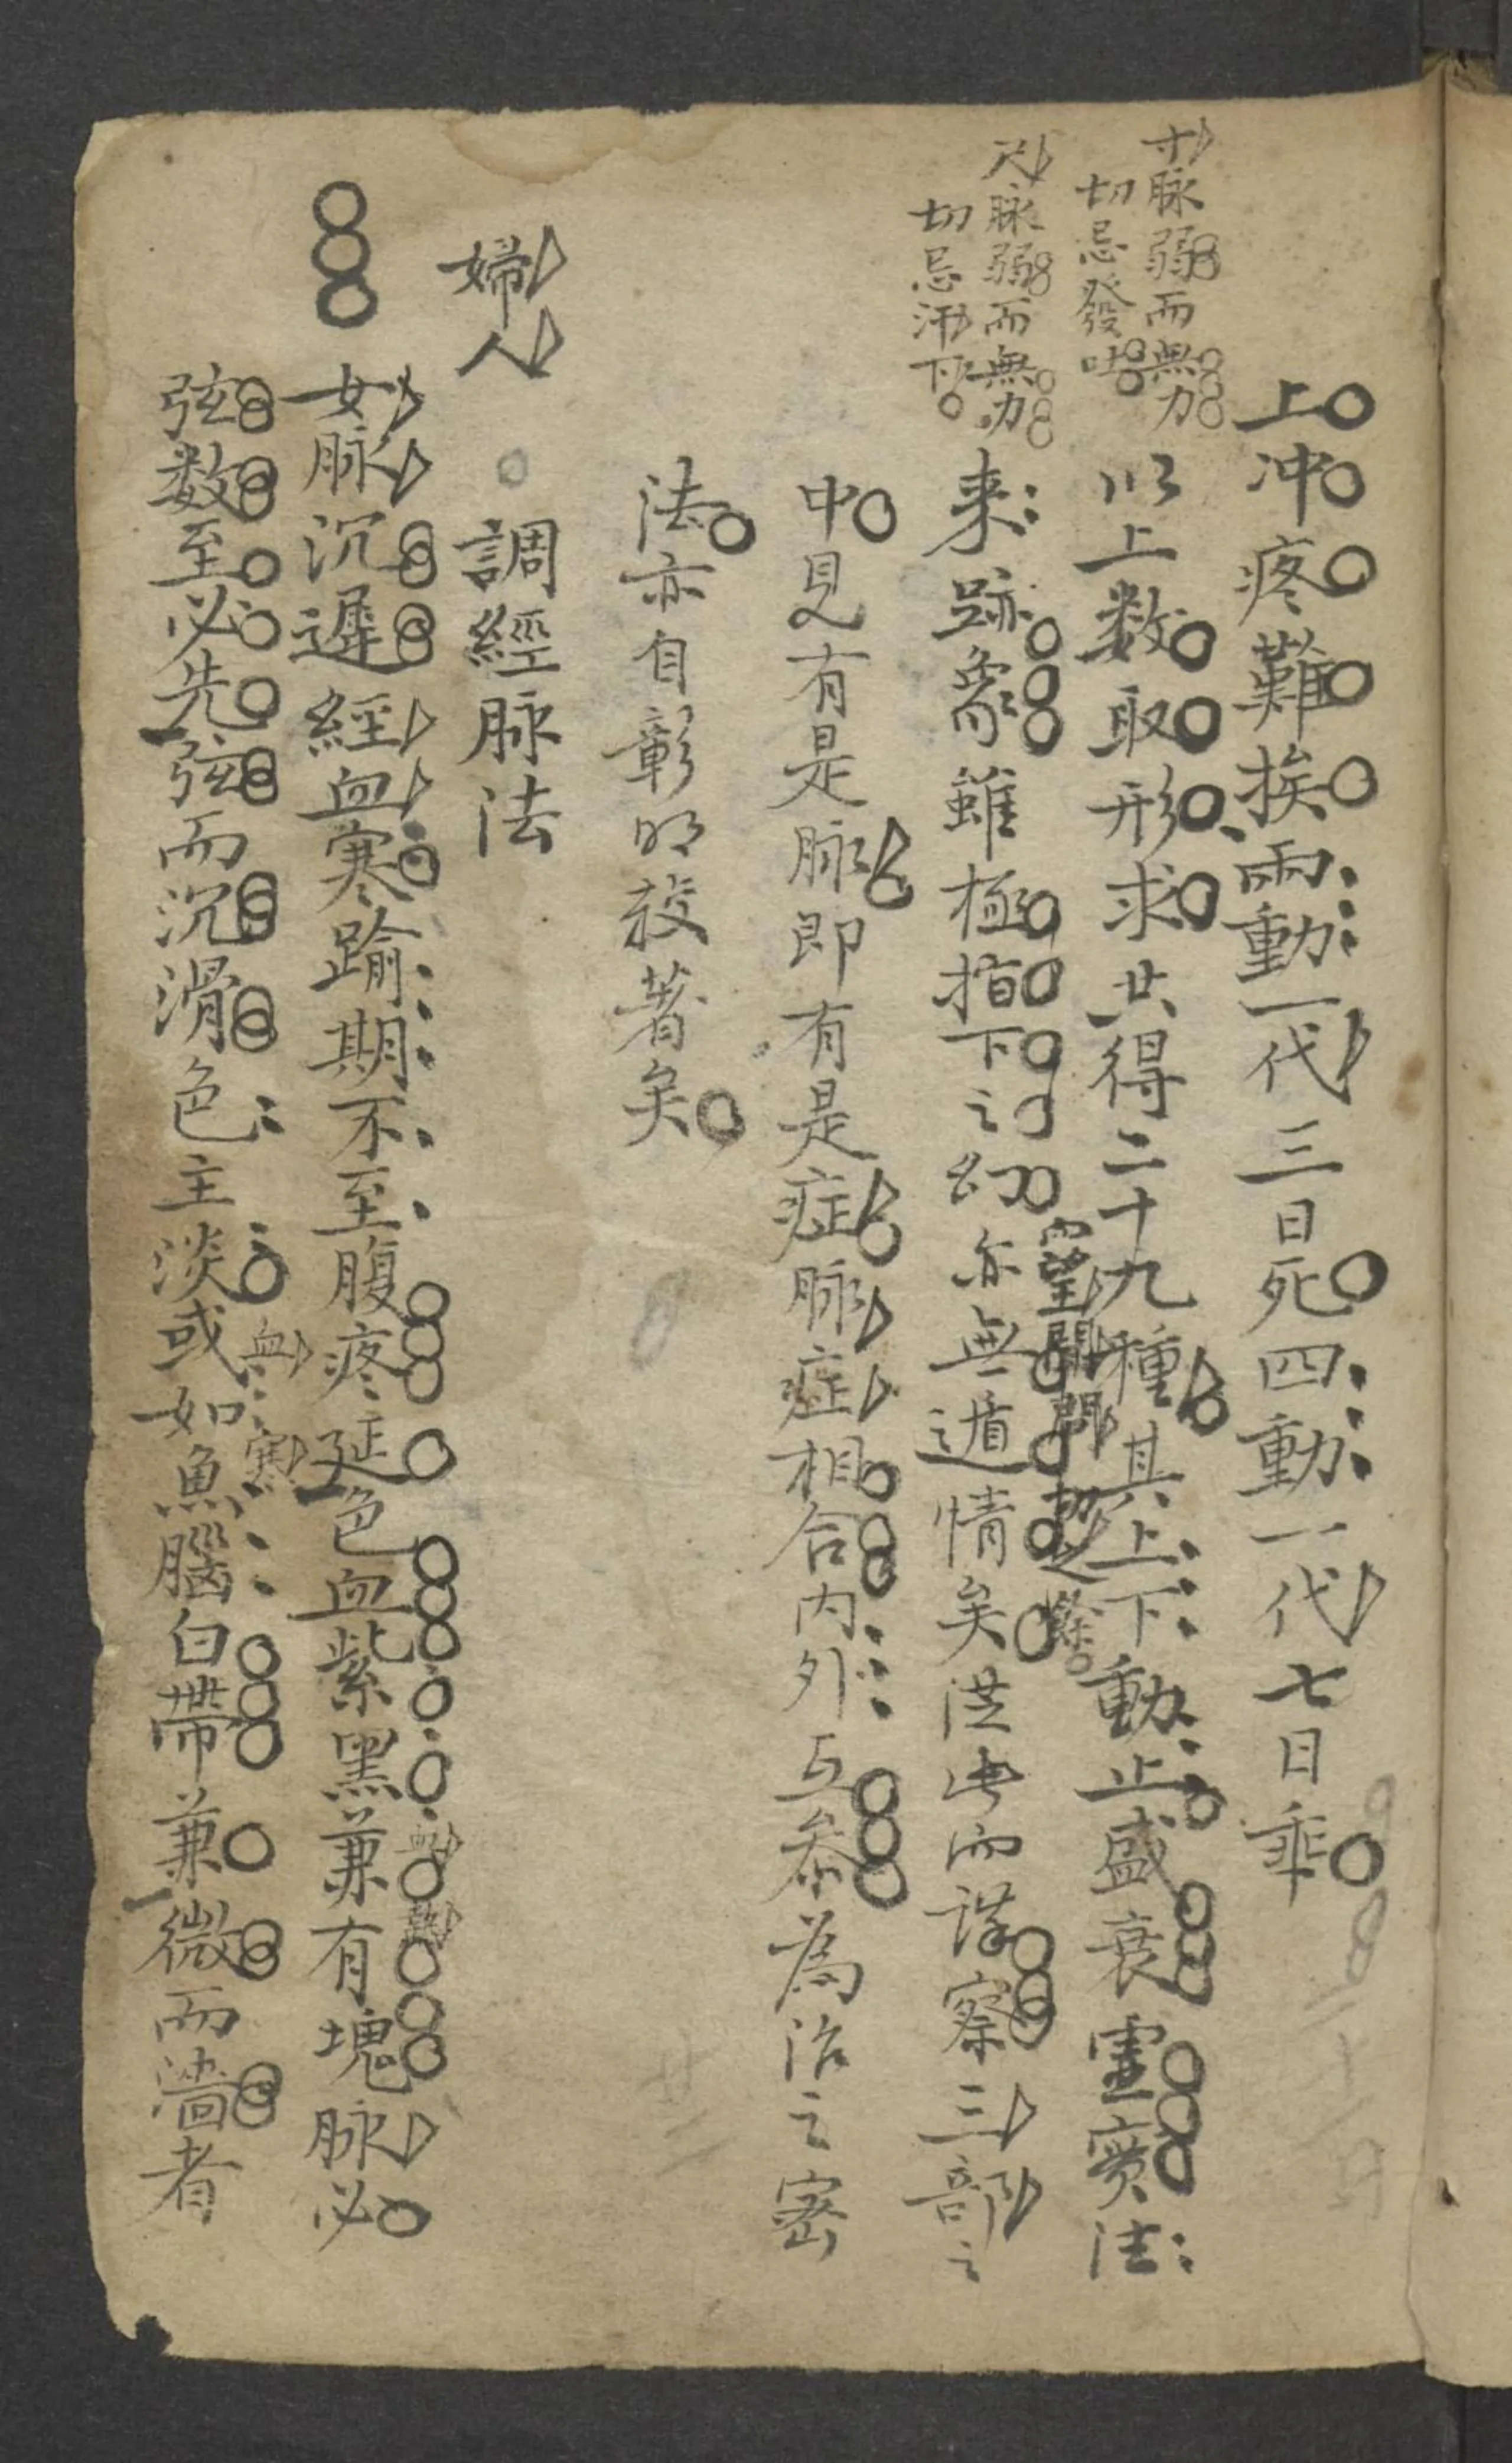 上冲疼難挨兩動一代三日死四動一代七日乖
寸脉弱而無力
切忌發吐
以上数取形求共得二十九種其上下動止盛衰虛實法
尺脉弱而無力
切忌汗下
来跡象雖極指下之幻亦無遁情矣洪此而詳察三部之
望聞問
中見有是脉即有是症脉症相合内外互叅為治之宻
法亦自彰明较著矣
婦人 調經脉法
女脉沉遲經血寒踰期不至腹疼延色血紫黑兼有塊脉必
血
寒
弦数至必先弦而沉滑色主淡或如魚腦白帶兼微而濇者